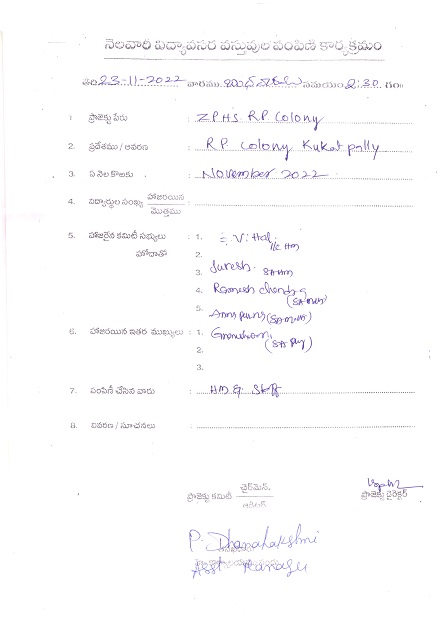 నెలవారీ విద్యావసర వస్తువుల పంపిణీ కార్యక్రమం
తేది 23-11-2022 వారము బుధవారము సమయం 2:30 గం॥
1 ప్రాజెక్టు పేరు : ZPHS R.P Colony
2. ప్రదేశము / ఆవరణ : R.P. Colony Kukatpally
3. ఏ నెల కొఱకు : November 2022
4. విద్యార్థుల సంఖ్య హాజరయిన
మొత్తము :
5. హాజరైన కమిటీ సభ్యులు : 1. V. Hal I/c HM
హోదాతో 2.
3. Suresh SAHM
4. Ramesh Chendra
5. Annapurna
6. హాజరయిన ఇతర ముఖ్యులు : 1.
2.
3.
7. పంపిణీ చేసిన వారు : HM & Staff
8. వివరణ / సూచనలు :
చైర్‌మెన్.
ప్రాజెక్టు కమిటీ ప్రాజెక్టు డైరెక్టర్
P. Dhanalakshmi
Asst Manager